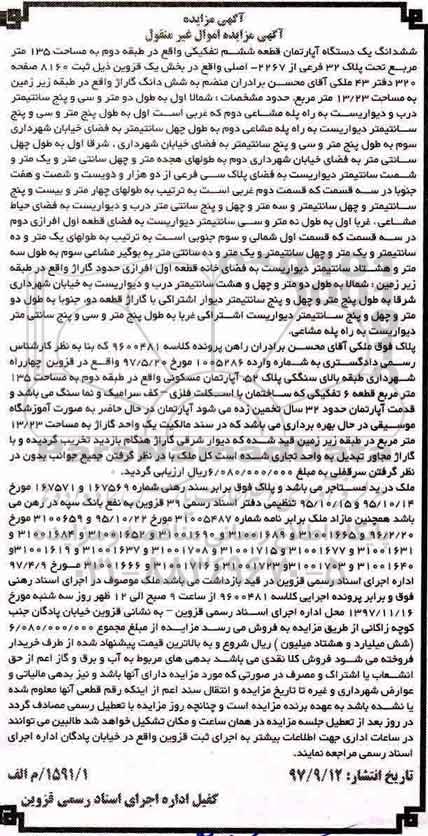 آگهی مزایده
آگهی مزایده اموال غیر منقول
ششدانگ یک دستگاه آپارتمان قطعه ششم تفکیکی واقع در طبقه دوم به مساحت ۱۳۵ متر
مربع تحت پلاک ۳۲ فرعی از ۲۲۶۷- اصلی واقع در بخش یک قزوین ذیل ثبت ۸۱۶۰ صفحه
۳۲۰ دفتر ۴۳ ملکی آقای محسن برادران منضم به شش دانگ گاراژ واقع در طبقه زیر زمین
به مساحت ۱۳/۲۳ متر مربع. حدود مشخصات : شمالا اول به طول دو متر و سی و پنج سانتیمتر
درب و دیواریست به راه پله مشاعی دوم که غربی است اول به طول پنج متر و سی و پنج
سانتیمتر دیواریست به راه پله مشاعی دوم به طول چهل سانتیمتر به فضای خیابان شهرداری
سوم به طول پنج متر و سی و پنج سانتیمتر به فضای خیابان شهرداری ، شرقا اول به طول چهل
سانتی متر به فضای خیابان شهرداری دوم به طولهای هجده متر و چهل سانتی متر و یک متر و
شصت سانتیمتر دیواریست به فضای پلاک سی فرعی از دو هزار و دویست و شصت و هفت
جنوبا در سه قسمت که قسمت دوم غربی است به ترتیب به طولهای چهار متر و بیست و پنج
سانتیمتر و چهل سانتیمتر و سه متر و چهل و پنج سانتی متر درب و دیواریست به فضای حیاط
مشاعی، غربا اول به طول نه متر و سی سانتیمتر دیواریست به فضای قطعه اول افرازی دوم
در سه قسمت که قسمت اول شمالی و سوم جنوبی است به ترتیب به طولهای یک متر و ده
سانتیمتر و یک متر و چهل سانتیمتر و یک متر و ده سانتی متر به بوگیر مشاعی سوم به طول سه
متر و هشتاد سانتیمتر دیواریست به فضای خانه قطعه اول افرازی حدود گاراژ واقع در طبقه
زیر زمین : شمالا به طول دو متر و چهل و هشت سانتیمتر درب و دیواریست به خیابان شهرداری
شرقا به طول پنج متر و چهل و پنج سانتیمتر دیوار اشتراکی با گاراژ قطعه دو، جنوبا به طول دو
متر و چهل و پنج سانتیمتر دیواریست اشتراکی غربا به طول پنج متر و سی و پنج سانتی متر
دیواریست به راه پله مشاعی.
پلاک فوق ملکی آقای محسن برادران راهن پرونده کلاسه ۹۶۰۰۴۸۱ که بنا به نظر کارشناس
رسمی دادگستری به شماره وارده ۱۰۰۵۲۸۶ مورخ ۹۷/۵/۲۰ واقع در قزوین چهارراه
شهرداری طبقه بالای سنگکی پلاک ۵۲- آپارتمان مسکونی واقع در طبقه دوم به مساحت ۱۳۵
متر مربع قطعه ۶ تفکیکی که ساختمان با اسکلت فلزی - کف سرامیک و نما سنگ می باشد و
قدمت آپارتمان حدود ۳۲ سال تخمین زده می شود آپارتمان در حال حاضر به صورت آموزشگاه
موسیقی در حال بهره برداری می باشد که در سند مالکیت یک واحد گاراژ به مساحت ۱۳/۲۳
متر مربع در طبقه زیر زمین قید شده که دیوار شرقی گاراژ هنگام بازدید تخریب گردیده و با
گاراژ مجاور تبدیل به واحد تجاری شده است کل ملک با در نظر گرفتن جمیع جوانب بدون در
نظر گرفتن سرقفلی به مبلغ ۶/۰۸۰/۰۰۰/۰۰۰ریال ارزیابی گردید.
ملک در ید مستاجر می باشد و پلاک فوق برابر سند رهنی شماره ۱۶۷۵۶۹ و ۱۶۷۵۷۱ مورخ
۹۵/۱۰/۱۴ و ۹۵/۱۰/۱۵ تنظیمی دفتر اسناد رسمی ۳۹ قزوین به نفع بانک سپه در رهن می
باشد همچنین مازاد ملک برابر نامه شماره ۳۱۰۰۵۴۸۷ مورخ ۹۵/۱۰/۲۲ و ۳۱۰۰۶۵۹ مورخ
۹۶/۲/۲۰ و ۳۱۰۰۱۶۶۵ و ۳۱۰۰۱۶۸۹ و ۳۱۰۰۱۶۱۶ و ۳۱۰۰۱۶۵۲ و ۳۱۰۰۱۶۸۴ و
۳۱۰۰۱۶۳۱ و ۳۱۰۰۱۶۷۷ و ۳۱۰۰۱۷۱۵ و ۳۱۰۰۱۷۰۸ و ۳۱۰۰۱۶۳۷ و ۳۱۰۰۱۶۱۹و
۳۱۰۰۱۶۴۰ و ۳۱۰۰۱۷۰۳ و ۳۱۰۰۱۶۲۳ و ۳۱۰۰۱۶۶۶ مورخ ۹۷/۴/۹
اداره اجرای اسناد رسمی قزوین در قید بازداشت می باشد ملک موصوف در اجرای اسناد رهنی
فوق و برابر پرونده اجرایی کلاسه ۹۶۰۰۴۸۱ از ساعت ۹ صبح الی ۱۲ ظهر روز سه شنبه مورخ
۱۳۹۷/۱۱/۱۶ محل اداره اجرای اسناد رسمی قزوین - به نشانی قزوین خیابان پادگان جنب
کوچه زاکانی از طریق مزایده به فروش می رسد مزایده از مبلغ مجموع ۶/۰۸۰/۰۰۰/۰۰۰
(شش میلیارد و هشتاد میلیون ) ریال شروع و به بالاترین قیمت پیشنهاد شده از طرف خریدار
فروخته می شود فروش کلا نقدی می باشد بدهی های مربوط به آب و برق و گاز اعم از حق
انشعاب یا اشتراک و مصرف در صورتی که مورد مزایده دارای آنها باشد و نیز بدهی مالیاتی و
عوارض شهرداری و غیره تا تاریخ مزایده و انتقال سند اعم از اینکه رقم قطعی آنها معلوم شده
یا نشده باشد به عهده برنده مزایده است و چنانچه روز مزایده با تعطیل رسمی مصادف گردد
در روز بعد از تعطیل جلسه مزایده در همان ساعت و مکان تشکیل خواهد شد طالبین می توانند
در ساعات اداری جهت اطلاعات بیشتر به اجرای ثبت قزوین واقع در خیابان پادگان اداره اجرای
اسناد رسمی مراجعه نمایند.
تاریخ انتشار: ۹۷/۹/۱۲ ۱۵۹۱/۱/م الف
کفیل اداره اجرای اسناد رسمی قزوین